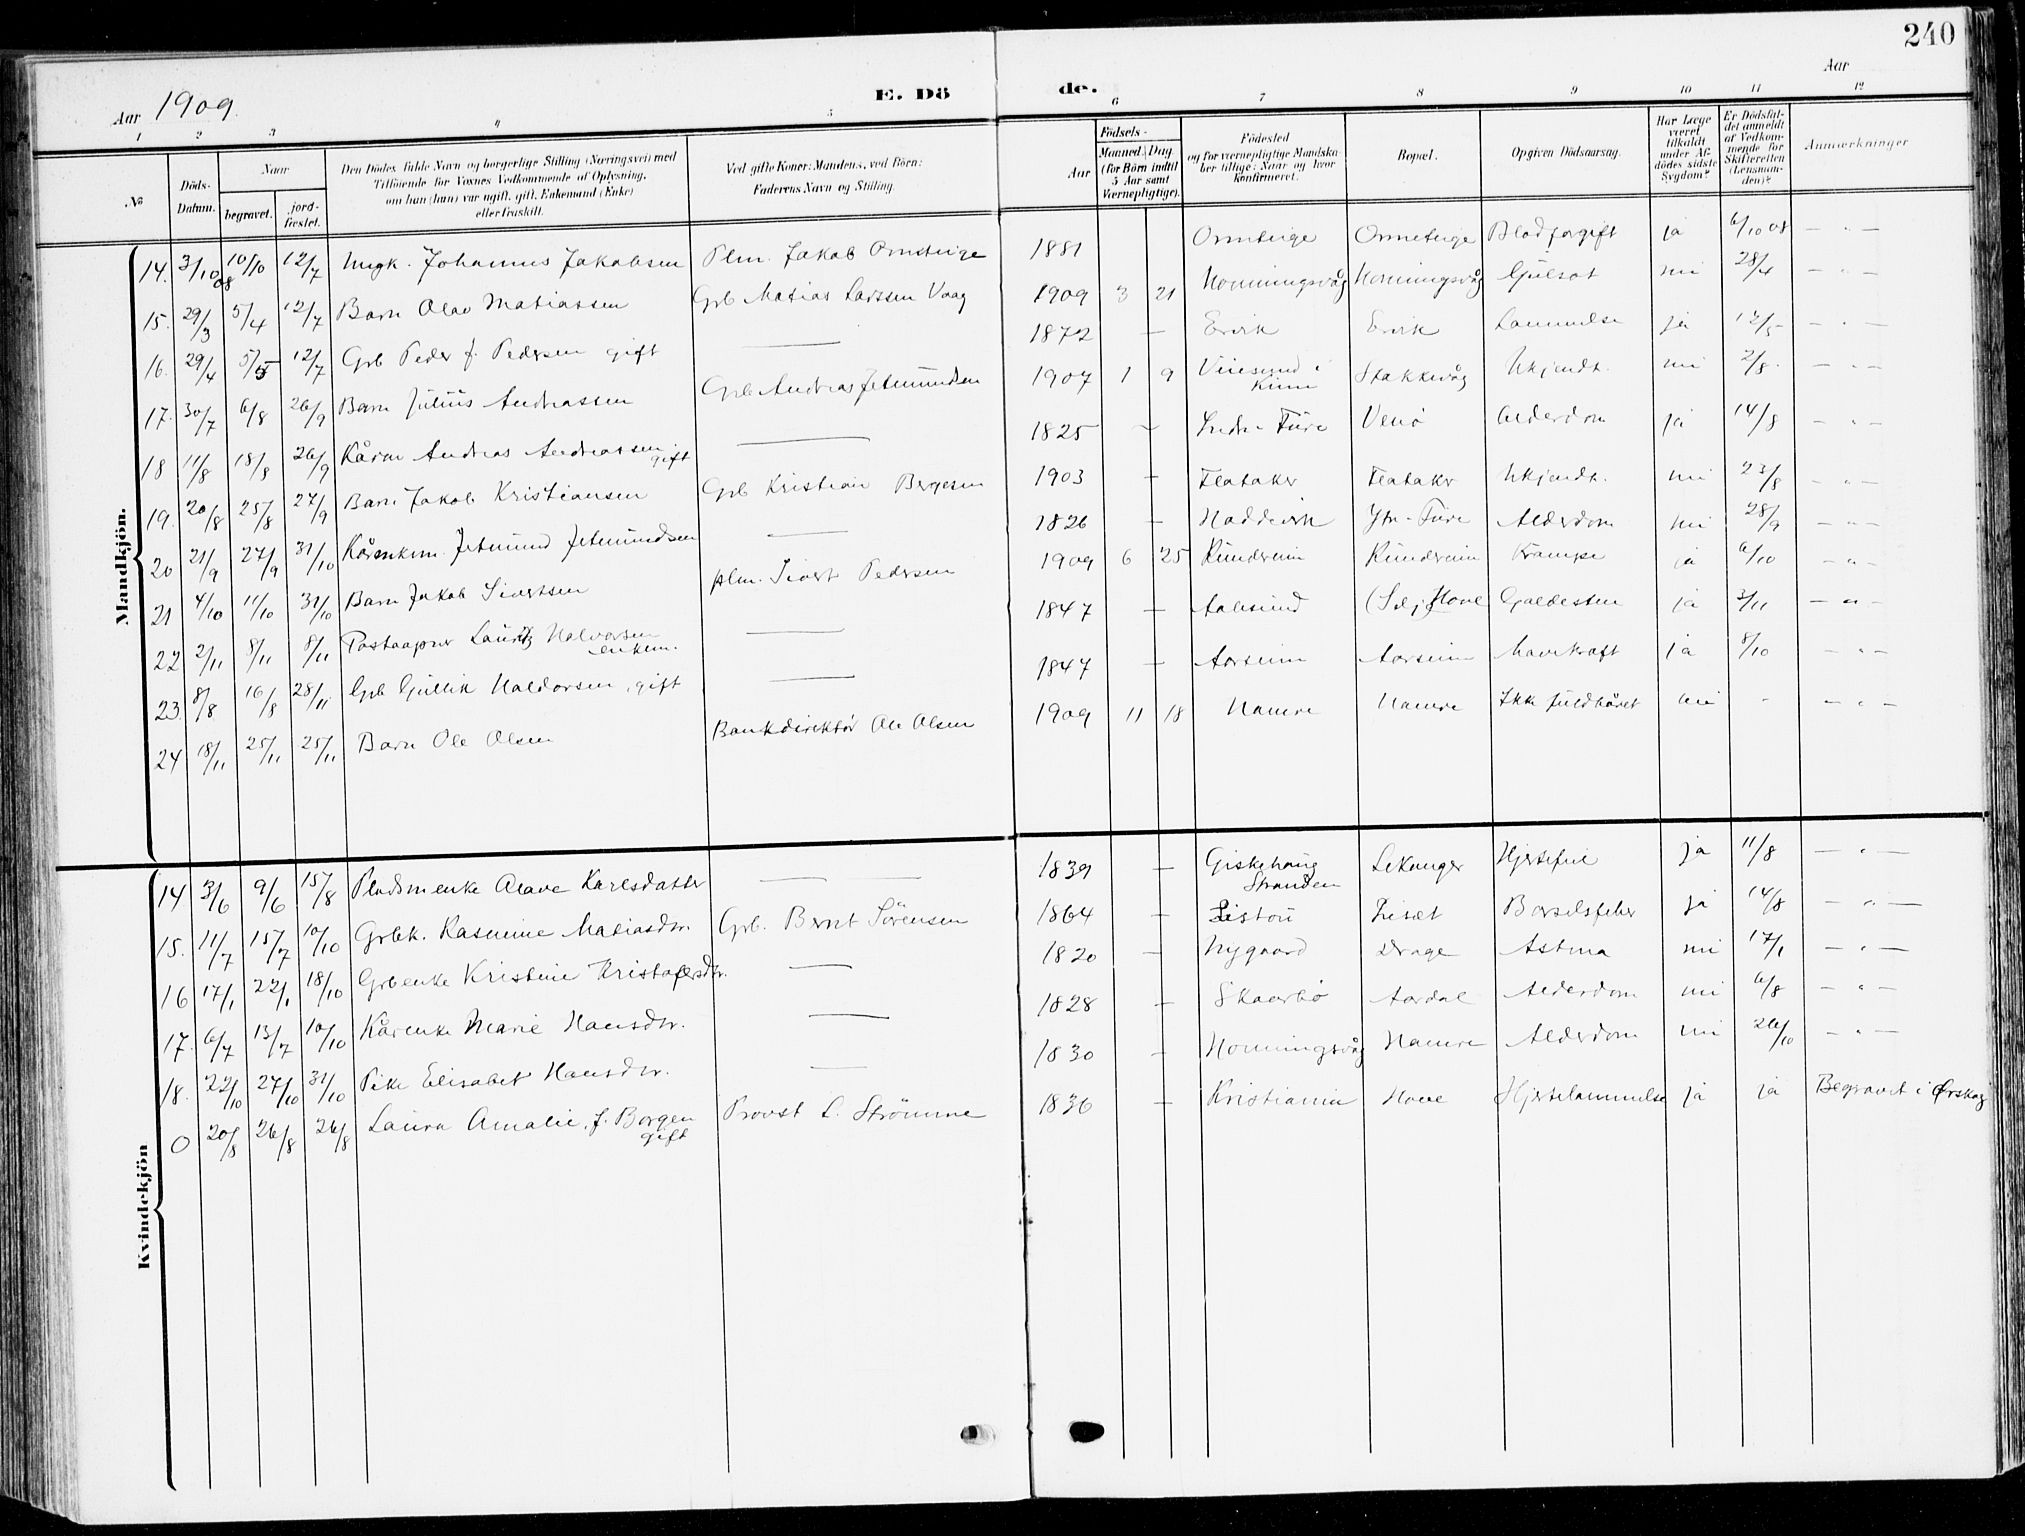 240
Aar 1909. E. Dö de. Aar
1 2 3 4 5 6 7 8 9 10 11 12
№ Döds-Datum. Naar begravet. jord-fæstet. Den Dödes fulde Navn og borgerlige Stilling (Næringsvei) med Tilföiende for Voxnes Vedkommende af Oplysning, om han (hun) var ugift, gift, Enkemand (Enke) eller fraskilt. Ved gifte Koner: Mandens, ved Börn: Faderens Navn og Stilling. Födsels- Aar Maaned. Dag (for Börn indtil 5 Aar samt Værnepligtige). Födested og for værnepligtige Mandskaber tillige: Naar og hvor konfirmeret. Bopæl. Opgiven Dödsaarsag. Har Læge været tilkaldt under Afdödes sidste Sygdom? Er Dödsfaldet anmeldt af Vedkommende for Skifteretten (Lensmanden)? Anmærkninger
Mandkjön.
14. 3/10 08 10/10 12/7 Ungk. Johannes Jakobsen Plm. Jakob Ormteige 1881 Ormteige Ormeteige Blodforgift ja 6/10 08 — " —
15. 29/3 5/4 12/7 Barn Olav Matiassen Grb Matias Larssen Vaag 1909 3 21 Honningsvåg Honningsvåg Gulsot nei 28/4 — " —
16. 29/4 5/5 12/7 Grb Peder J. Pedersen gift — 1872 — Ervik Ervik Lammelse ja 12/5 — " —
17. 30/7 6/8 26/9 Barn Julius Andreassen Grb Andreas Jetmundsen 1907 1 9 i Kinn Stakkevåg Ukjendt. nei 2/8. — " —
18 11/8 18/8 26/9 Kårm Andreas Andreassen gift — 1825 — Indre-Fure Venö Alderdom ja 14/8 — " —
19. 20/8 25/8 27/9 Barn Jakob Kristiansen Grb Kristian Bergesen 1903 — Flataker Flataker Ukjendt. nei 23/8 — " —
20 21/9 27/9 31/10 Kårenkem. Jetmund Jetmundsen — 1826 — Haddevik Ytre-Fure Alderdom nei 28/9 — " —
21 4/10 11/10 31/10 Barn Jakob Sivertsen plm. Sivert Pedersen 1909 6 25 Runderein Runderein Krampe ja 6/10 — " —
22 2/11 8/11 8/11 Postaapner Lauritz Halvorsen enkem. — 1847 — Aalesund (Selje) Hove Galdesten ja 3/11 — " —
23. 8/8 16/8 28/11 Grb Gullik Haldorsen, gift — 1847 — Aarseim Aarseim Mavekræft ja 8/10 — " —
24 18/11 25/11 25/11 Barn Ole Olsen Bankdirektör Ole Olsen 1909 11 18 Hamre Hamre Ikke fuldbåret nei - — " —
Kvindekjön
14 3/6 9/6 15/8 Pladsmenke Olave Karlsdatter — — 1839 — Giskehaug Stranden Lekanger Hjertefeil ja 11/8 — " —
15. 11/7 15/7 10/10 Grbk. Rasmine Matiasdtr. Grb. Bernt Sörensen 1864 — Liset Barselsfeber ja 14/8 — " —
16 17/1 22/1 18/10 Grbenke Kristine Kristofersdtr. — 1820 — Nygaard Drage Astma nei 17/1 — " —
17. 6/7 13/7 10/10 Kårenke Marie Hansdtr. — 1828 — Skaarbö Aardal Alderdom nei 6/8 — " —
18. 22/10 27/10 31/10 Pike Elisabet Hansdtr. — 1830 — Honningsvåg Hamre Alderdom nei 26/10 — " —
0 20/8 26/8 26/8 Laura Amalie, f. Borgen gift Provst L. Strömme 1836 — Kristiania Hove Hjertelammelse ja ja Begravet i Ørskog